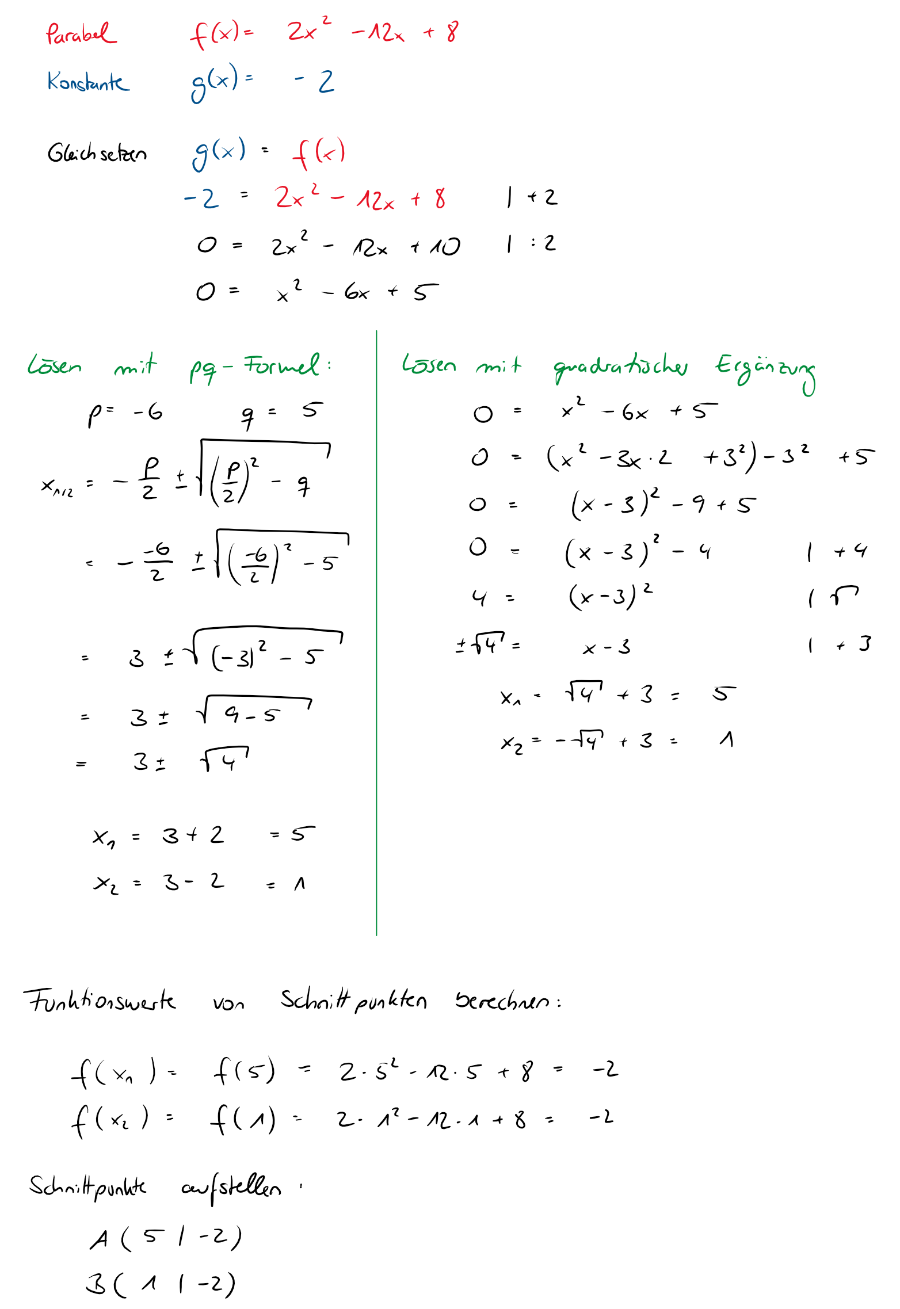 Parabel f(x) = 2x² - 12x + 8
Konstante g(x) = - 2
Gleichsetzen g(x) = f(x)
-2 = 2x² - 12x + 8 | + 2
0 = 2x² - 12x + 10 | : 2
0 = x² - 6x + 5
Lösen mit pq-Formel:
p = -6 q = 5
x₁/₂ = - p/2 ± √((p/2)² - q)
= - -6/2 ± √((-6/2)² - 5)
= 3 ± √((-3)² - 5)
= 3 ± √(9 - 5)
= 3 ± √4
x₁ = 3 + 2 = 5
x₂ = 3 - 2 = 1
Lösen mit quadratischer Ergänzung
0 = x² - 6x + 5
0 = (x² - 3x · 2 + 3²) - 3² + 5
0 = (x - 3)² - 9 + 5
0 = (x - 3)² - 4 | + 4
4 = (x - 3)² | √
±√4 = x - 3 | + 3
x₁ = √4 + 3 = 5
x₂ = -√4 + 3 = 1
Funktionswerte von Schnittpunkten berechnen:
f(x₁) = f(5) = 2 · 5² - 12 · 5 + 8 = -2
f(x₂) = f(1) = 2 · 1² - 12 · 1 + 8 = -2
Schnittpunkte aufstellen:
A ( 5 | -2)
B ( 1 | -2)